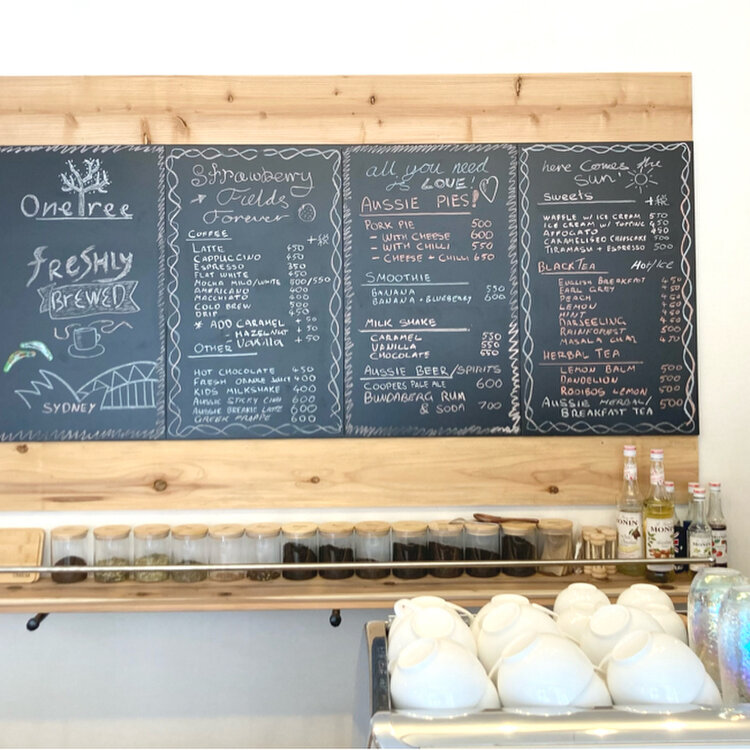 One Tree
FReSHLY
BREWED
SYDNEY
Strawberry
Fields
Forever
COFFEE
LATTE 450
CAPPUCCINO 450
ESPRESSO 350
FLAT WHITE 450
MOCHA MILO/WHITE 500/550
AMERICANO 400
MACCHIATO 400
COLD BREW 500
DRIP 450
* ADD CARAMEL +50
- HAZELNUT +50
- Vanilla +50
OTHER
HOT CHOCOLATE 450
FRESH ORANGE JUICE 400
KIDS MILKSHAKE 400
AUSSIE STICKY CHAI 600
AUSSIE BREAKIE LATTE 600
GREEK FRAPPE 600
all you need
is LOVE!
AUSSIE PIES!
PORK PIE 500
- WITH CHEESE 600
- WITH CHILLI 550
- CHEESE + CHILLI 650
SMOOTHIE
BANANA 550
BANANA + BLUEBERRY 600
MILK SHAKE
CARAMEL 550
VANILLA 550
CHOCOLATE 550
AUSSIE BEER/SPIRITS
COOPERS PALE ALE 600
BUNDABERG RUM
& SODA 700
here Comes the
SUN!
SWEETS
WAFFLE W/ ICE CREAM 570
ICE CREAM W/ TOPPING 450
AFFOGATO 450
CARAMELISED CHEESCAKE 500
TIRAMASU + ESPRESSO 500
BLACK TEA Hot/ICE
ENGLISH BREAKFAST 450
EARL GREY 450
PEACH 450
LEMON 450
MINT 450
DARJEELING 450
RAINFOREST 500
MASALA CHAI 470
HERBAL TEA
LEMON BALM 500
DANDELION 500
ROOIBOS LEMON 500
AUSSIE HERBAL/
BREAKFAST TEA 500
MONIN
MONIN